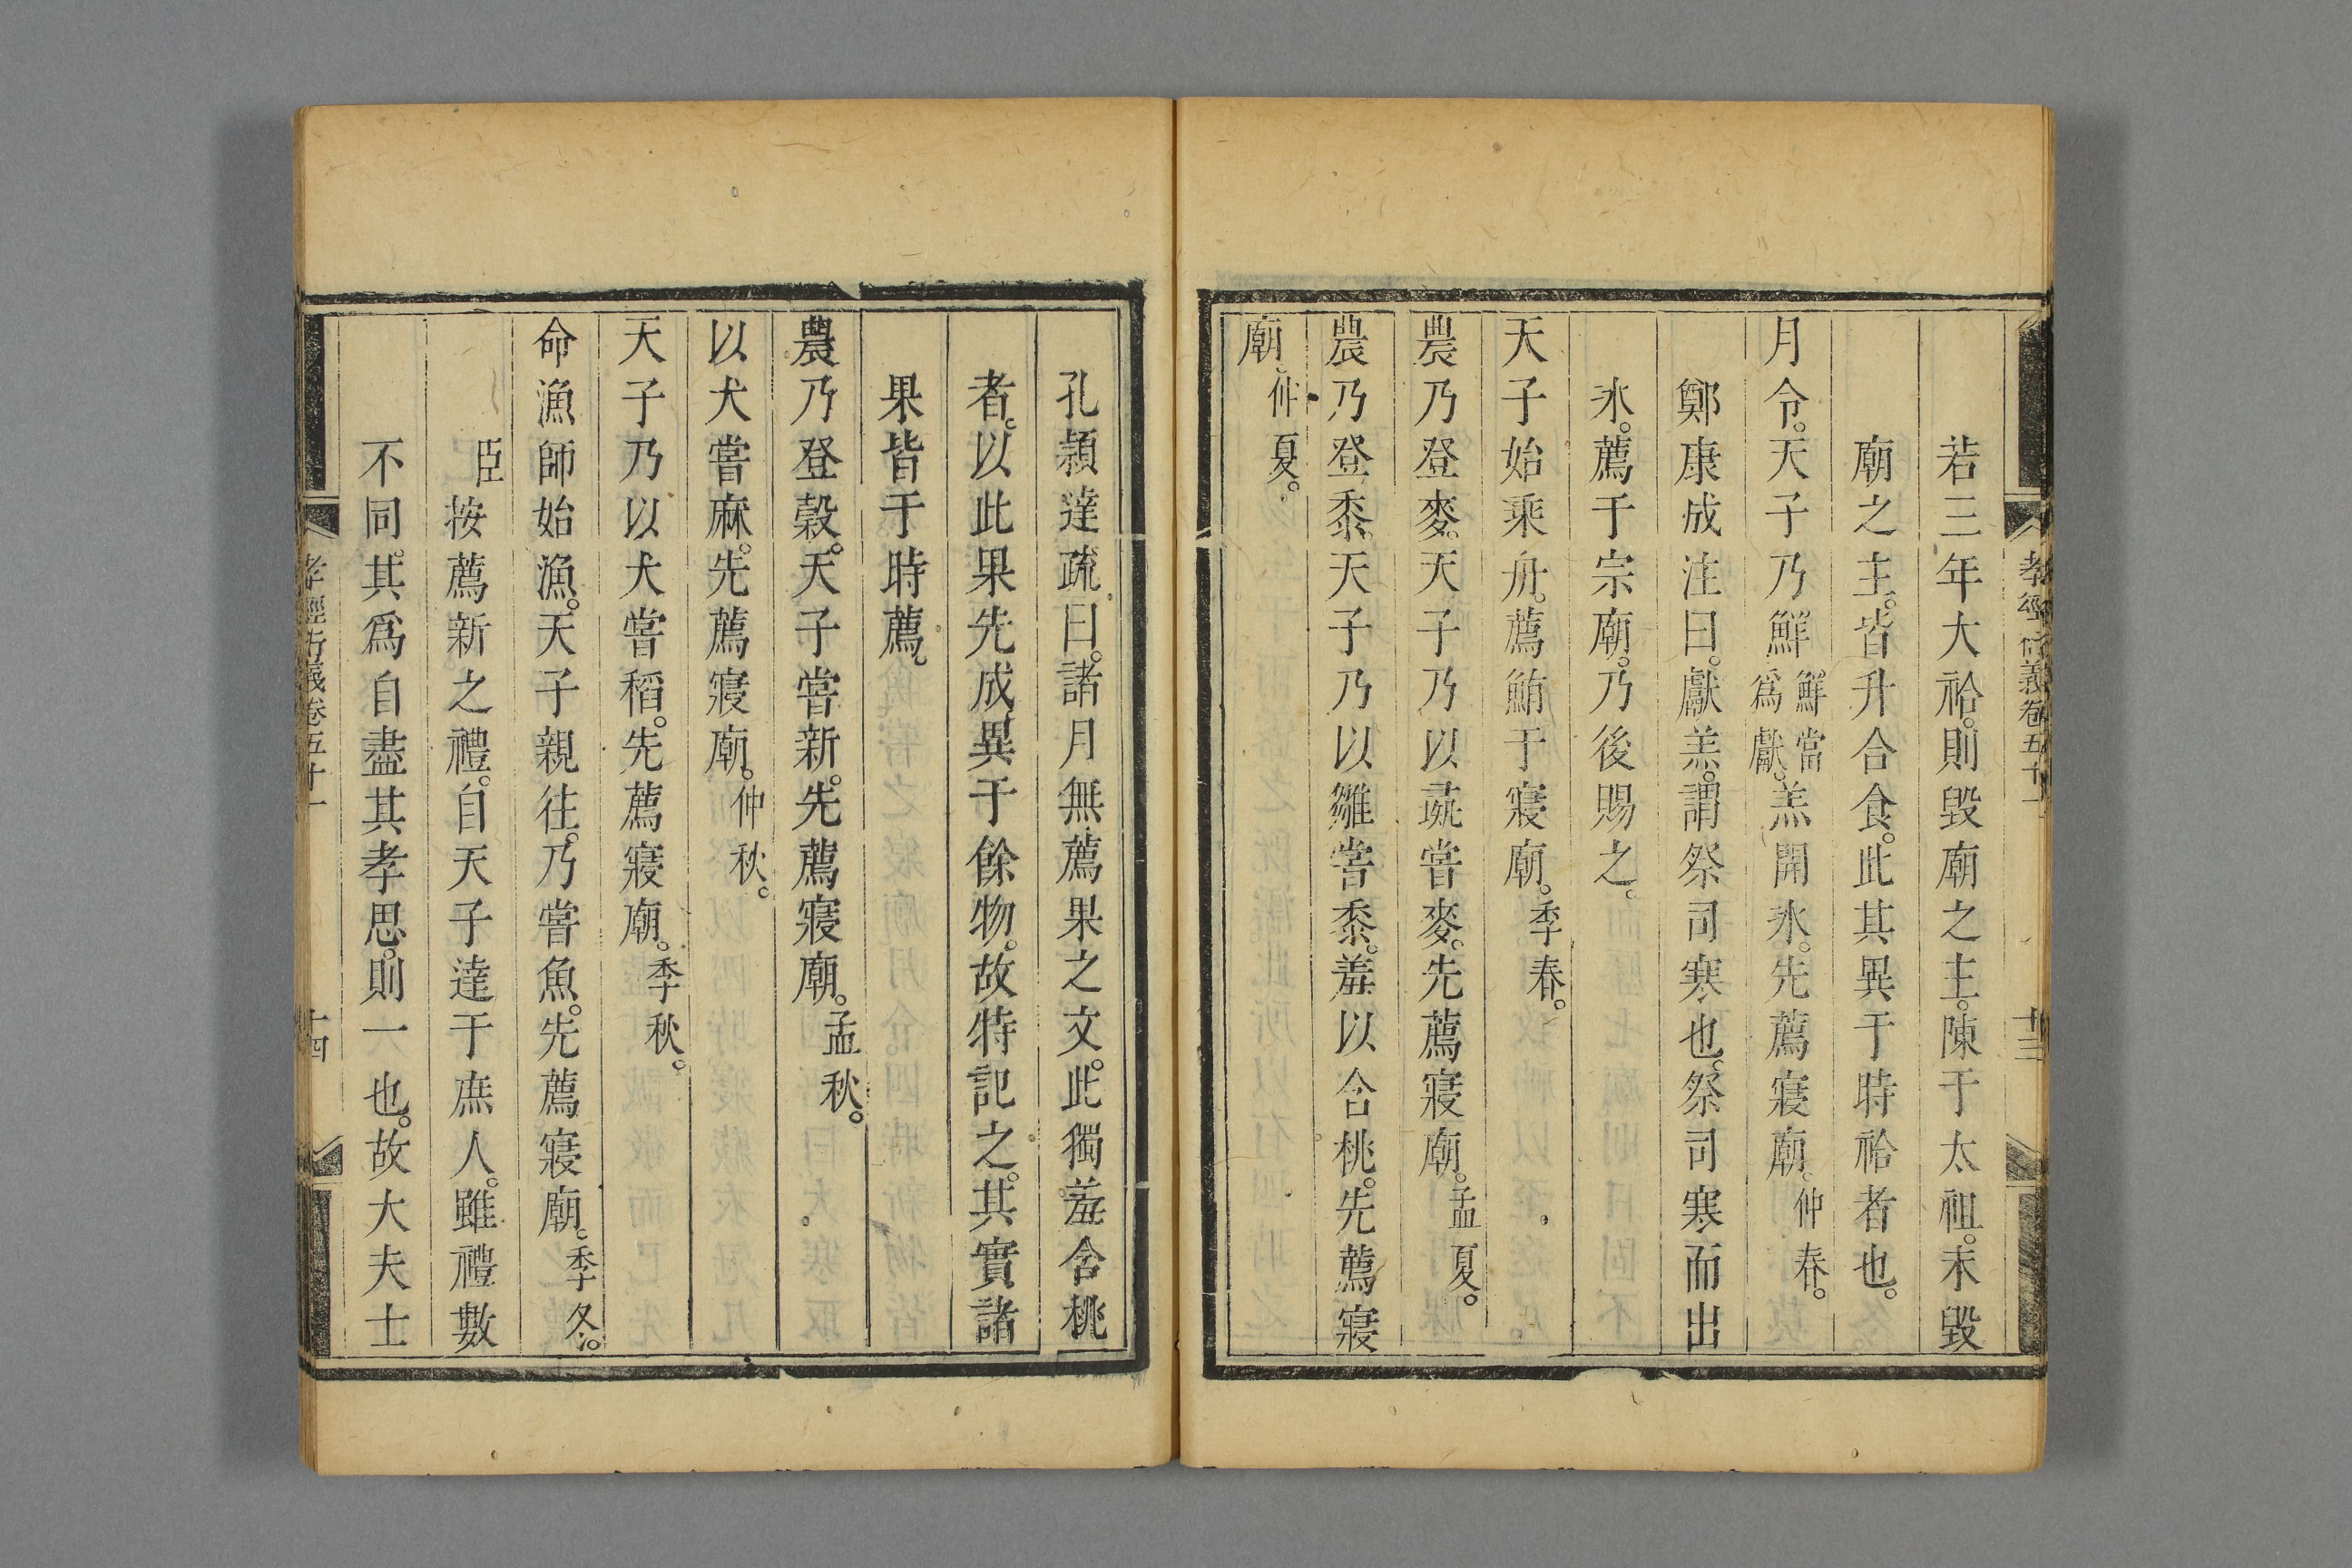 孝經衍義卷五十一
十三
若三年大祫。則毀廟之主。陳于太祖。未毀
廟之主。皆升合食。此其異于時祫者也。
月令。天子乃鮮鮮當爲獻。羔開氷。先薦寢廟。仲春。
鄭康成注曰。獻羔。謂祭司寒也。祭司寒而出
氷。薦于宗廟。乃後賜之。
天子始乘舟。薦鮪于寢廟。季春。
農乃登麥。天子乃以彘嘗麥。先薦寢廟。孟夏。
農乃登黍。天子乃以雛嘗黍。羞以含桃。先薦寢
廟。仲夏。
孔穎達疏曰。諸月無薦果之文。此獨羞含桃
者。以此果先成。異于餘物。故特記之。其實諸
果皆于時薦。
農乃登穀。天子嘗新。先薦寢廟。孟秋。
以犬嘗麻。先薦寢廟。仲秋。
天子乃以犬嘗稻。先薦寢廟。季秋。
命漁師始漁。天子親往。乃嘗魚。先薦寢廟。季冬。
臣按薦新之禮。自天子達于庶人。雖禮數
不同。其爲自盡其孝思。則一也。故大夫士
孝經衍義卷五十一
十四